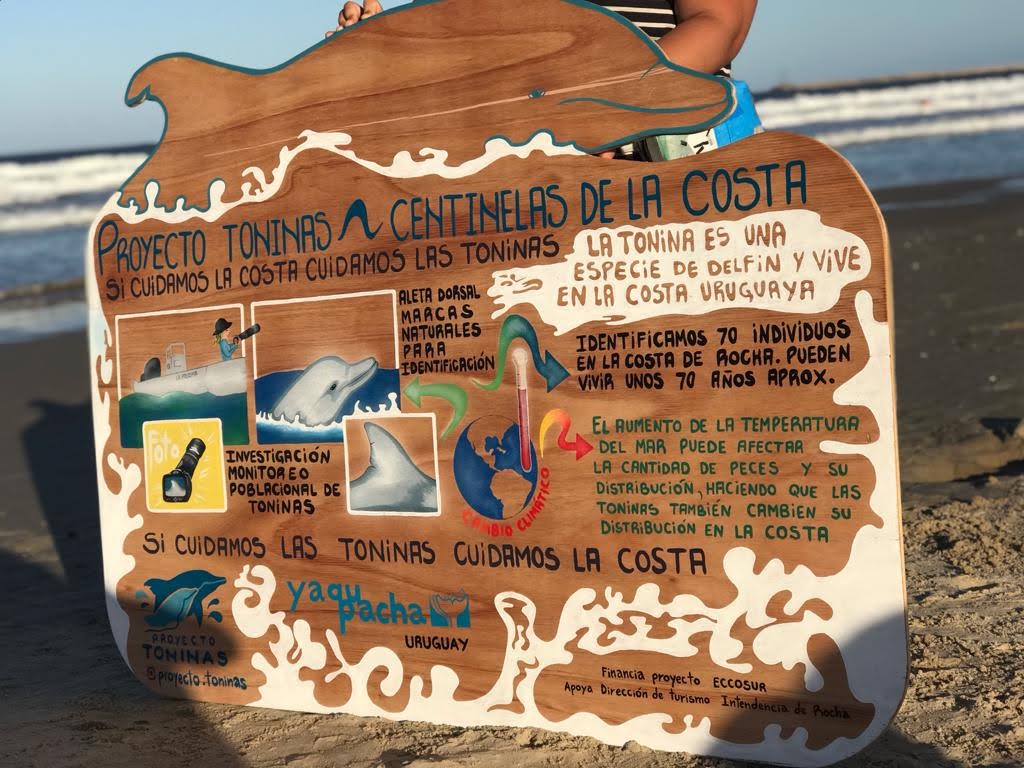 PROYECTO TONINAS CENTINELAS DE LA COSTA
SI CUIDAMOS LA COSTA CUIDAMOS LAS TONINAS
LA TONINA ES UNA
ESPECIE DE DELFIN Y VIVE
EN LA COSTA URUGUAYA
ALETA DORSAL
MARCAS
NATURALES
PARA
IDENTIFICACIÓN
IDENTIFICAMOS 70 INDIVIDUOS
EN LA COSTA DE ROCHA. PUEDEN
VIVIR UNOS 70 AÑOS APROX.
Foto
INVESTIGACIÓN
MONITOREO
POBLACIONAL DE
TONINAS
CAMBIO CLIMATICO
EL AUMENTO DE LA TEMPERATURA
DEL MAR PUEDE AFECTAR
LA CANTIDAD DE PECES Y SU
DISTRIBUCIÓN, HACIENDO QUE LAS
TONINAS TAMBIÉN CAMBIEN SU
DISTRIBUCIÓN EN LA COSTA
SI CUIDAMOS LAS TONINAS CUIDAMOS LA COSTA
PROYECTO
TONINAS
@proyecto.toninas
yaqu
pacha
URUGUAY
Financia proyecto ECCOSUR
Apoya Dirección de turismo Intendencia de Rocha